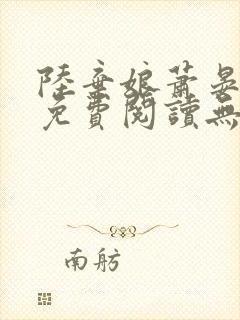 陸棄娘蕭晏
免費閱讀無
南舫